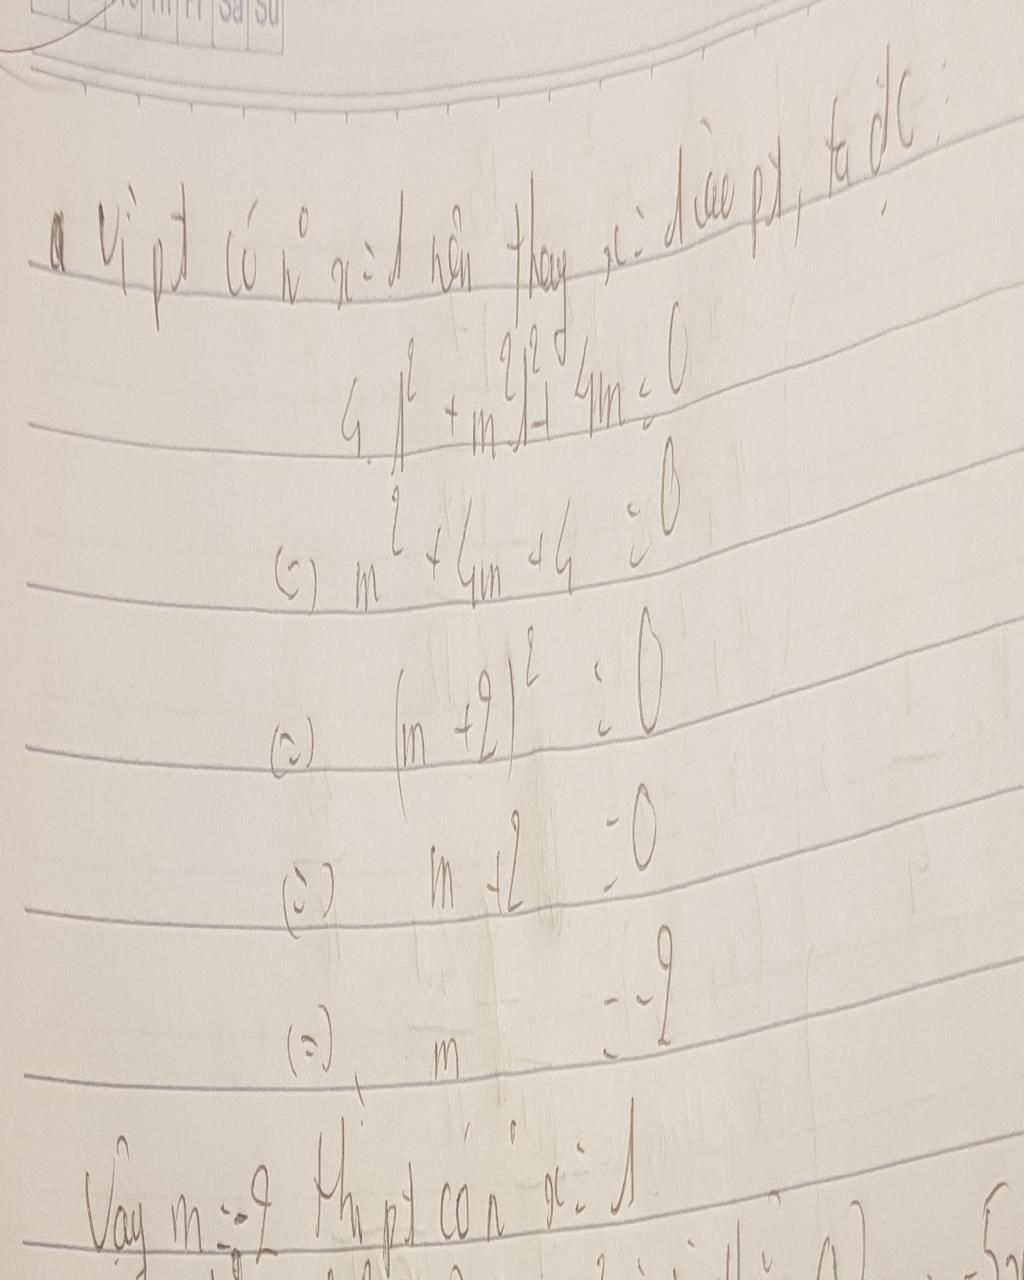 Sa Su
Vì pt có n° x = 1 nên thay x = 1 vào pt, ta đc:
4.1² + m²1² + 4m = 0
(=) m² + 4m + 4 = 0
(=) (m + 2)² = 0
(=) m + 2 = 0
(=) m = -2
Vậy m = -2 thì pt có n° x = 1